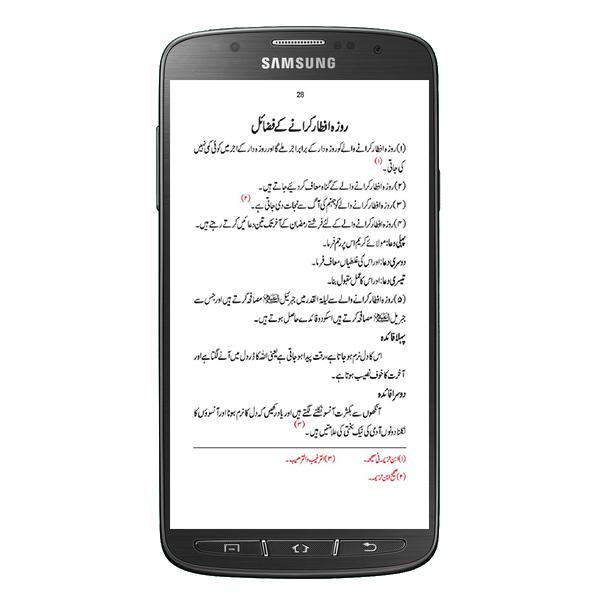 SAMSUNG
28
روزہ افطار کرانے کے فضائل
(۱) روزہ افطار کرانے والے کو روزہ دار کے برابر اجر ملے گا اور روزہ دار کے اجر میں کوئی کمی نہیں
کی جاتی۔ (۱)
(۲) روزہ افطار کرانے والے کے گناہ معاف کر دئیے جاتے ہیں۔
(۳) روزہ افطار کرانے والے کو جہنم کی آگ سے نجات دی جاتی ہے۔ (۲)
(۴) روزہ افطار کرانے والے کے لئے فرشتے رمضان کے آخر تک تین دعائیں کرتے رہتے ہیں۔
پہلی دعا: مولائے کریم اس پر رحم فرما۔
دوسری دعا: اور اس کی غلطیاں معاف فرما۔
تیسری دعا: اور اس کا عمل مقبول بنا۔
(۵) روزہ افطار کرانے والے سے لیلۃ القدر میں جبرئیل مصافحہ کرتے ہیں اور جس سے
جبریل مصافحہ کرتے ہیں اسکو دو فائدے حاصل ہوتے ہیں۔
پہلا فائدہ
اس کا دل نرم ہو جاتا ہے، رقت پیدا ہو جاتی ہے یعنی اللہ کا ڈر دل میں آنے لگتا ہے اور
آخرت کا خوف نصیب ہوتا ہے۔
دوسرا فائدہ
آنکھوں سے بکثرت آنسو نکلنے لگتے ہیں اور یاد رکھیں کہ دل کا نرم ہونا اور آنسوؤں کا
نکلنا دونوں آدمی کی نیک بختی کی علامتیں ہیں۔ (۳)
(۱) ابن خزیمہ فی صحیحہ۔ (۳) الترغیب والترھیب۔
(۲) صحیح ابن خزیمہ۔